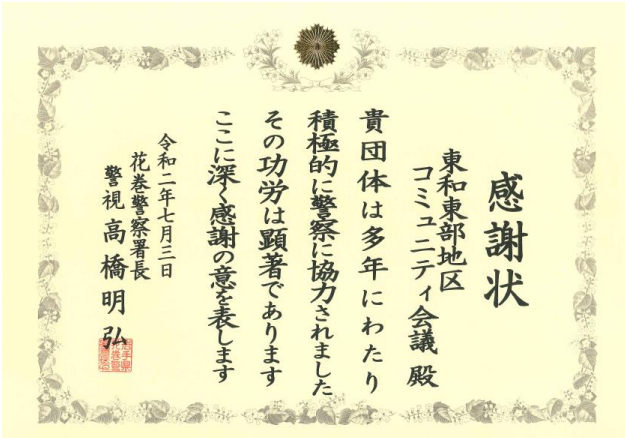 感謝状
東和東部地区
コミュニティ会議殿
貴団体は多年にわたり
積極的に警察に協力されました
その功労は顕著であります
ここに深く感謝の意を表します
令和二年七月三日
花巻警察署長
警視 高橋明弘